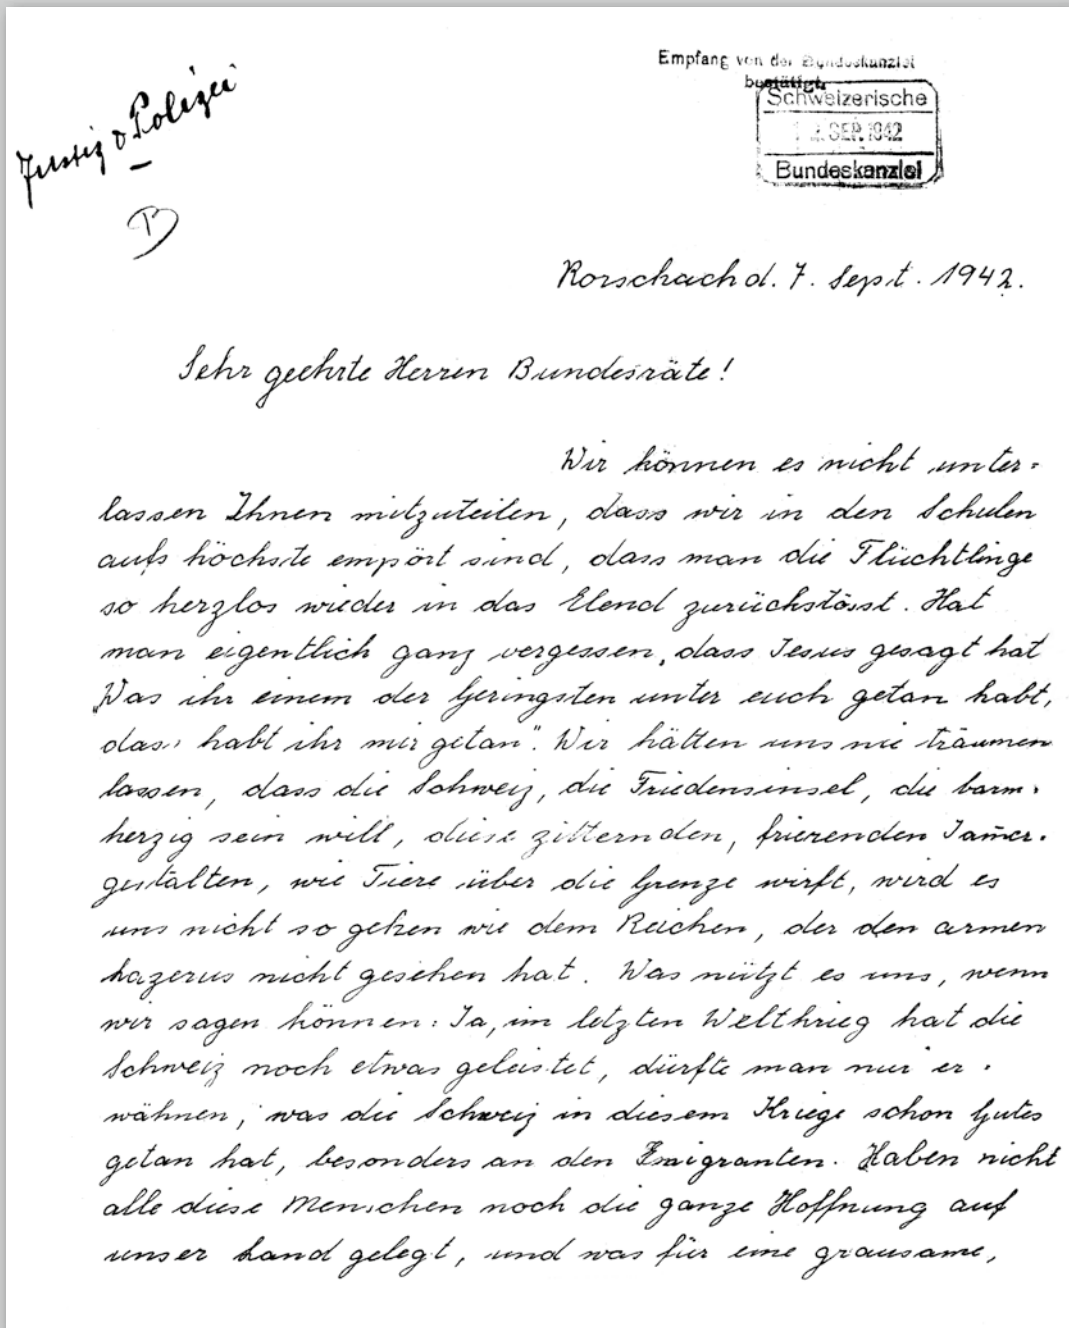 Justiz & Polizei
B
Empfang von der Bundeskanzlei
bestätigt.
Schweizerische
SEP. 1942
Bundeskanzlei
Rorschach d. 7. Sept. 1942.
Sehr geehrte Herren Bundesräte!
Wir können es nicht unter=
lassen Ihnen mitzuteilen, dass wir in den Schulen
aufs höchste empört sind, dass man die Flüchtlinge
so herzlos wieder in das Elend zurückstösst. Hat
man eigentlich ganz vergessen, dass Jesus gesagt hat
„Was ihr einem der Geringsten unter euch getan habt,
das habt ihr mir getan". Wir hätten uns nie träumen
lassen, dass die Schweiz, die Friedensinsel, die barm-
herzig sein will, diese zitternden, frierenden Jam̄er-
gestalten, wie Tiere über die Grenze wirft, wird es
uns nicht so gehen wie dem Reichen, der den armen
Lazerus nicht gesehen hat. Was nützt es uns, wenn
wir sagen können: Ja, im letzten Weltkrieg hat die
Schweiz noch etwas geleistet, dürfte man nur er-
wähnen, was die Schweiz in diesem Kriege schon Gutes
getan hat, besonders an den Emigranten. Haben nicht
alle diese Menschen noch die ganze Hoffnung auf
unser Land gelegt, und was für eine grausame,